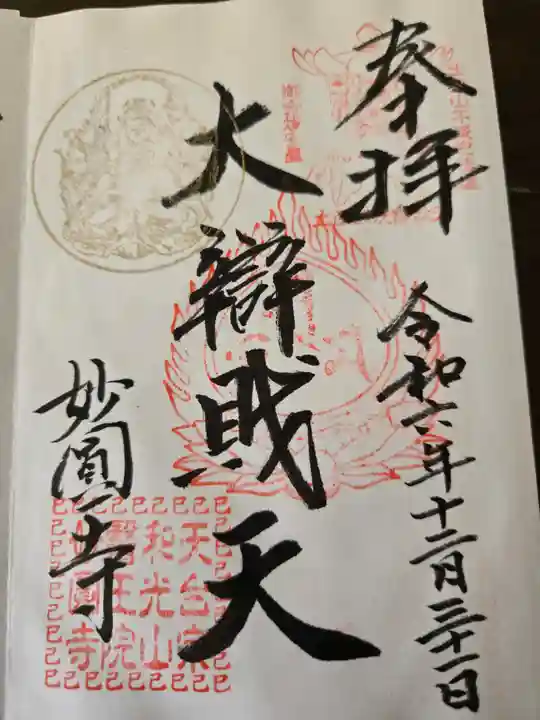 奉拝
令和六年十二月三十一日
大辯財天
妙圓寺
天台宗
和光山
醫王院
妙圓寺